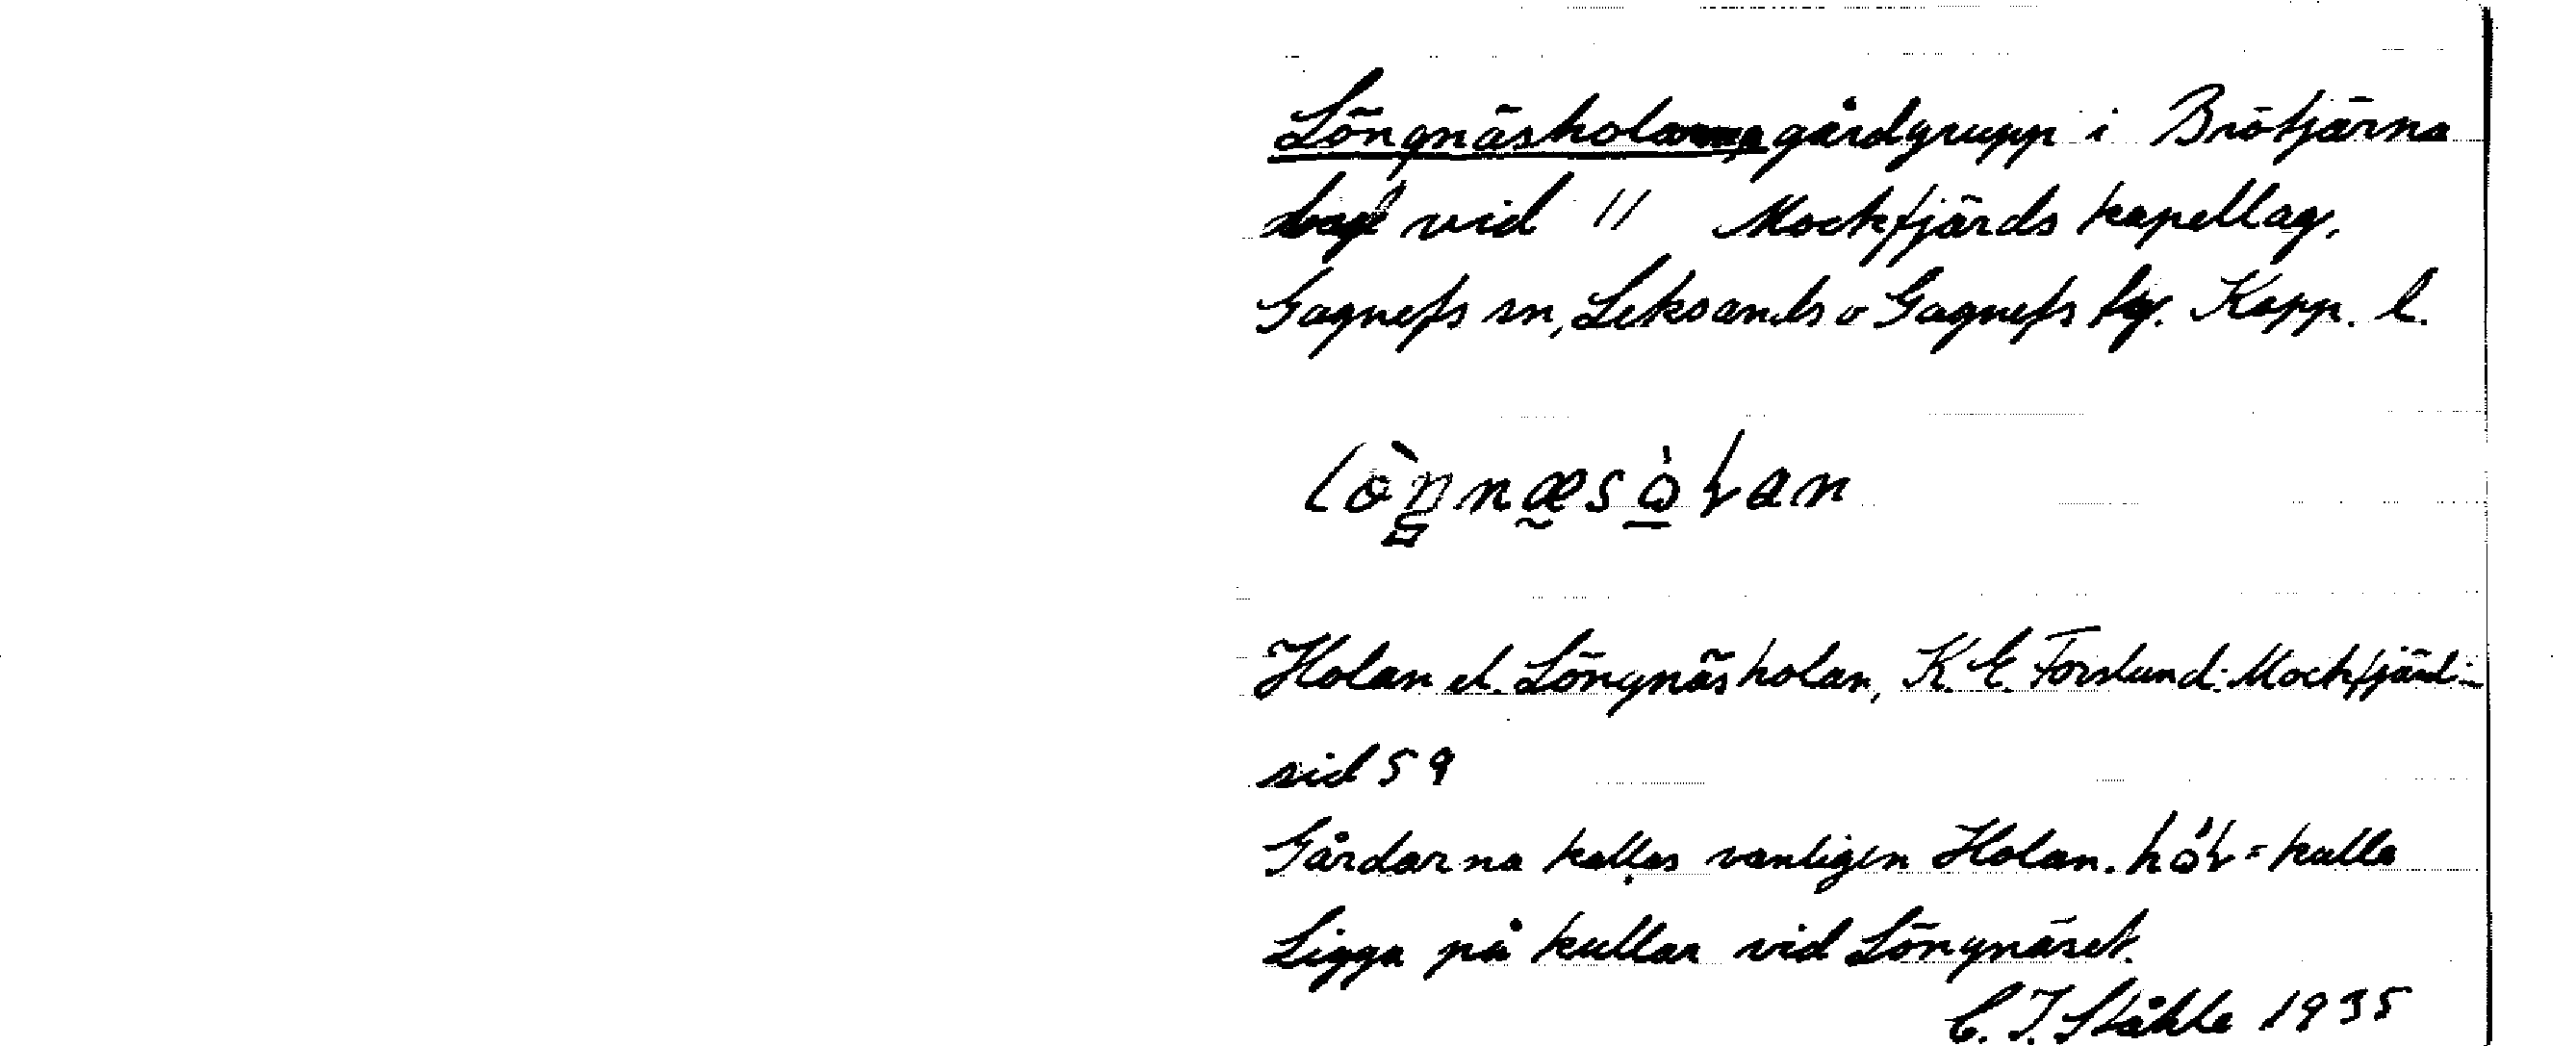 Löngnäsholarna gårdgrupp i Brötjärna
vid 11 Mockfjärds kapellag,
Gagnefs sn, Leksands o Gagnefs tg. Kopp. l.
Holan el. Löngnäsholan, K. E. Forslund: Mockfjärd:
sid 59
Gårdarna kallas vanligen Holan. = kulle
Ligga på kullar vid Löngnäset.
C. I. Ståhle 1935